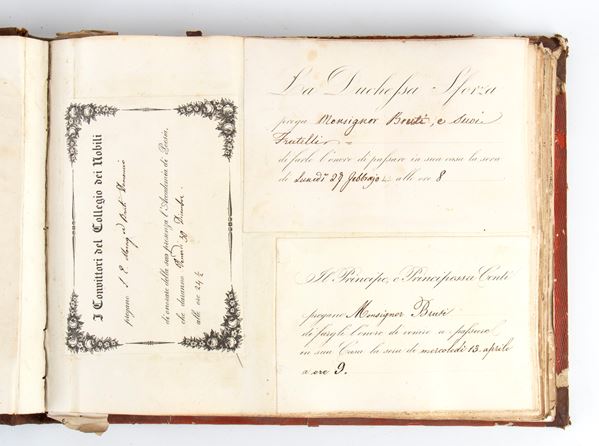 I Convittori del Collegio dei Nobili
pregano S. E. Monsig.
di onorare della sua presenza l'Accademia di Poesia,
che daranno Venerdì 30 Decembre
alle ore 24 ½
La Duchessa Sforza
prega Monsignor Bruti, e suoi
Fratelli
di farle l'onore di passare in sua casa la sera
di Lunedì 27 Febbrajo alle ore 8
Il Principe, e Principessa Conti
pregano Monsignor Bruti
di fargli l'onore di venire a passare
in sua Casa la sera di mercoledì 13. aprile
a ore 9.